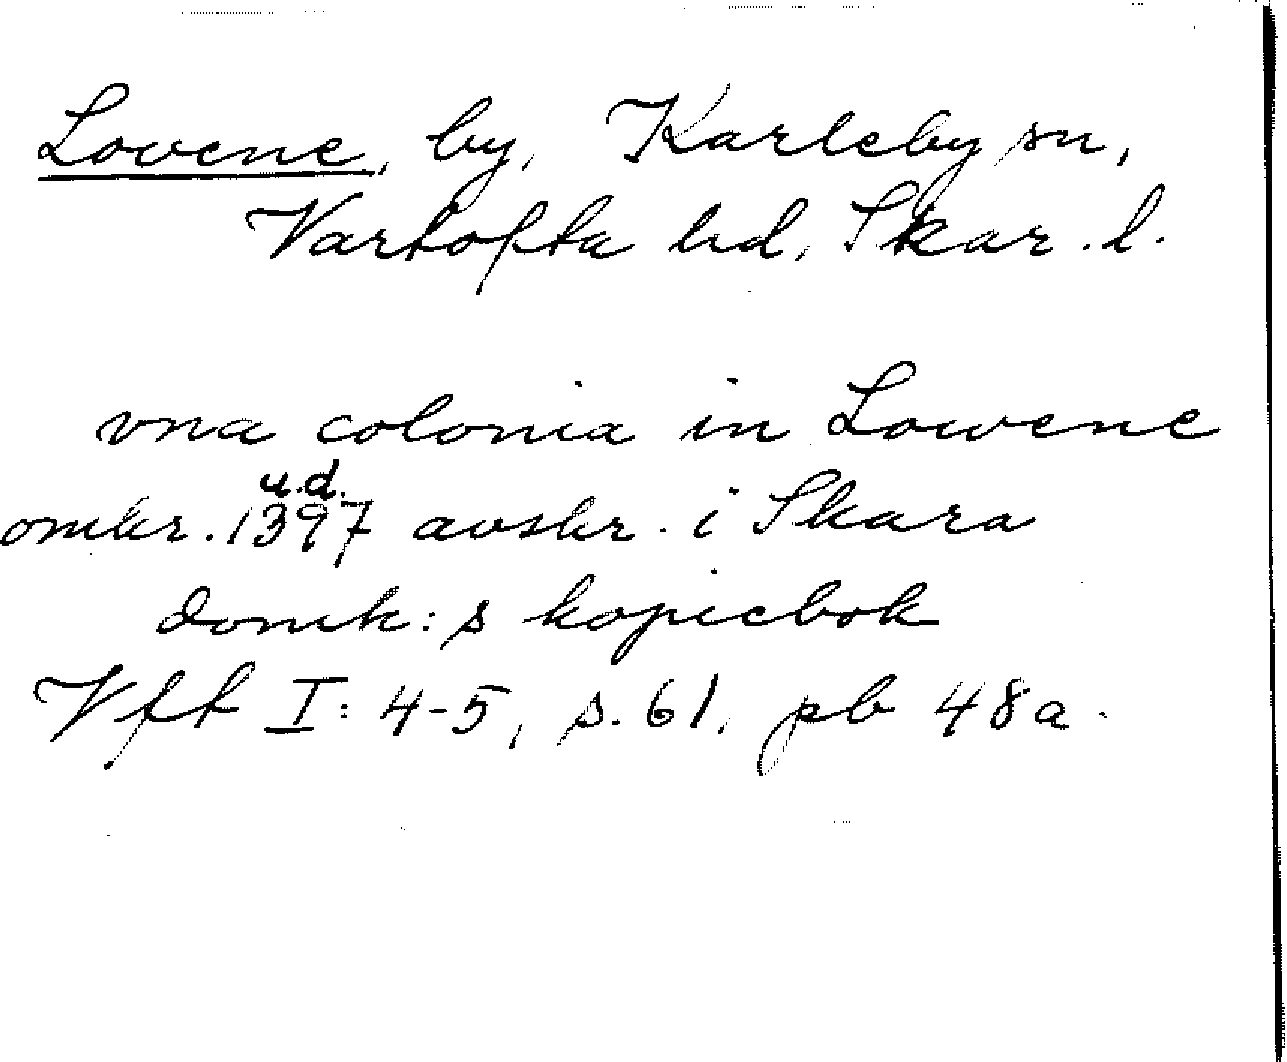 Lovene, by, Karleby sn,
Vartofta hd, Skar. l.
vna colonia in Lowene
u.d.
omkr. 1397 avskr. i Skara
domk:s kopiebok
Vff I: 4-5, s. 61, pb 48a.